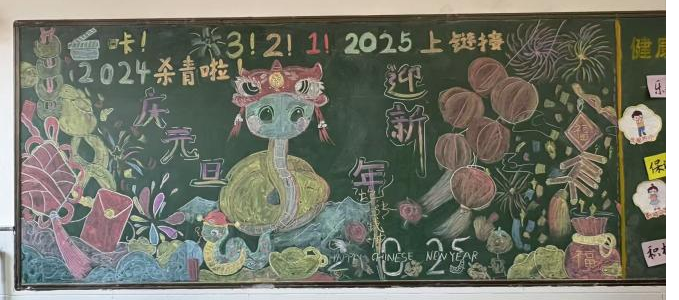 咔！ 3！2！1！2025上链接
2024杀青啦！
庆元旦
迎新年
福
2025
HAPPY CHINESE NEW YEAR
福
健康
乐
保
积极